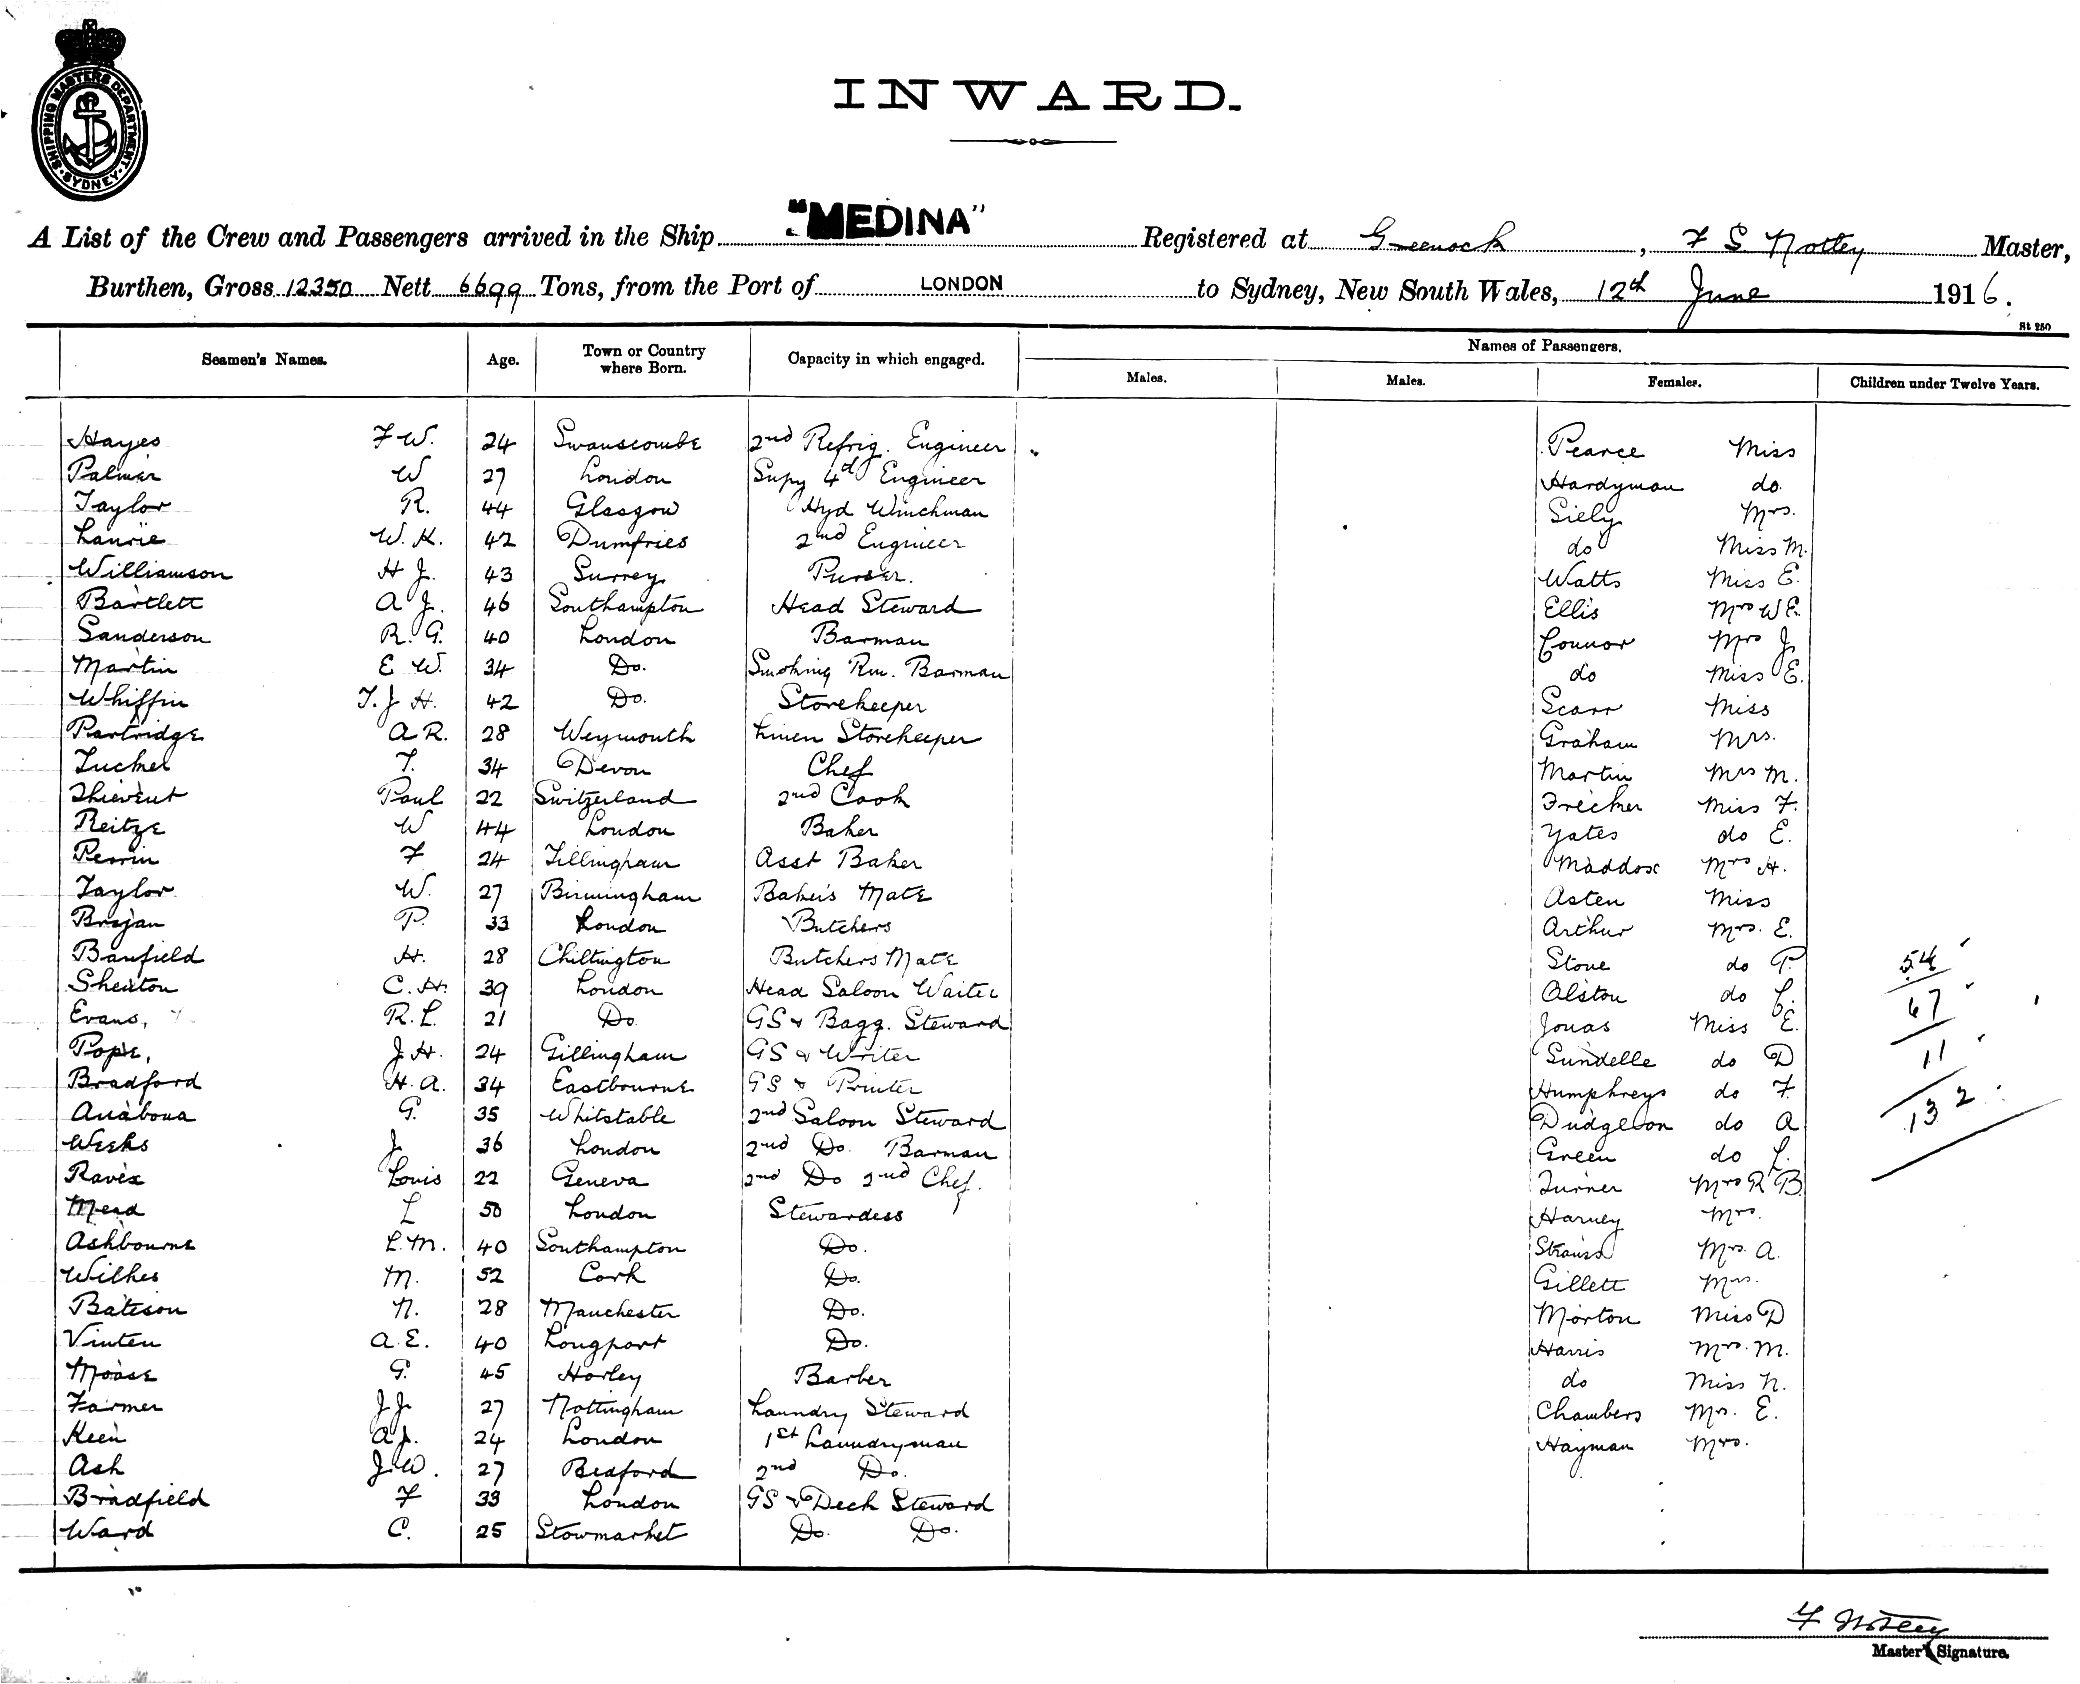 SHIPPING MASTERS DEPARTMENT · SYDNEY ·
INWARD.
A List of the Crew and Passengers arrived in the Ship "MEDINA" Registered at Greenock, F S Notley Master,
Burthen, Gross 12350 Nett 6699 Tons, from the Port of LONDON to Sydney, New South Wales, 12th June 1916.
St 250
Seamen's Names. Age. Town or Country where Born. Capacity in which engaged. Names of Passengers.
Males. Males. Females. Children under Twelve Years.
Hayes F W. 24 Swanscombe 2nd Refrig. Engineer Pearce Miss
Palmer W 27 London Supy 4th Engineer Hardyman do
Taylor R. 44 Glasgow Hyd Winchman Siely Mrs.
Laurie W. K. 42 Dumfries 2nd Engineer do Miss M.
Williamson H J. 43 Surrey Purser. Watts Miss E.
Bartlett A J. 46 Southampton Head Steward Ellis Mrs W E.
Sanderson R. G. 40 London Barman Connor Mrs J
Martin E W. 34 Do. Smoking Rm. Barman do Miss E.
Whiffin T. J H. 42 Do. Storekeeper Scarr Miss
Partridge A R. 28 Weymouth Linen Storekeeper Graham Mrs.
Tucker T. 34 Devon Chef Martin Mrs M.
Thievent Paul 22 Switzerland 2nd Cook Frecker Miss F.
Reitze W 44 London Baker Yates do E.
Perrin F 24 Tillingham Asst Baker Maddox Mrs H.
Taylor W. 27 Birmingham Baker's Mate Asten Miss
Brojan P. 33 London Butchers Arthur Mrs. E.
Banfield H. 28 Chiltington Butchers Mate Stone do P. 54
Shenton C. H. 39 London Head Saloon Waiter Alston do L. 67
Evans, R. L. 21 Do. GS & Bagg. Steward Jonas Miss E.
Pope, J H. 24 Gillingham GS & Writer Sundelle do D 11
Bradford H. A. 34 Eastbourne GS & Printer Humphreys do F.
Anabona G. 35 Whitstable 2nd Saloon Steward Dudgeon do A 132
Weeks J. 36 London 2nd Do. Barman Green do L.
Ravex Louis 22 Geneva 2nd Do 2nd Chef. Turner Mrs R B
Mead L 50 London Stewardess Harney Mrs.
Ashbourne L. M. 40 Southampton Do. Strauss Mrs. A.
Wilkes M. 52 Cork Do. Gillett Mrs.
Bateson N. 28 Manchester Do. Morton Miss D
Vinten A. E. 40 Longport Do. Harris Mrs. M.
Moase G. 45 Horley Barber do Miss N.
Farmer J. J. 27 Nottingham Laundry Steward Chambers Mrs. E.
Keen A J. 24 London 1st Laundryman Hayman Mrs.
Ash J. W. 27 Bedford 2nd Do.
Bradfield F 33 London GS & Deck Steward
Ward C. 25 Stowmarket Do. Do.
F Notley
Master's Signature.